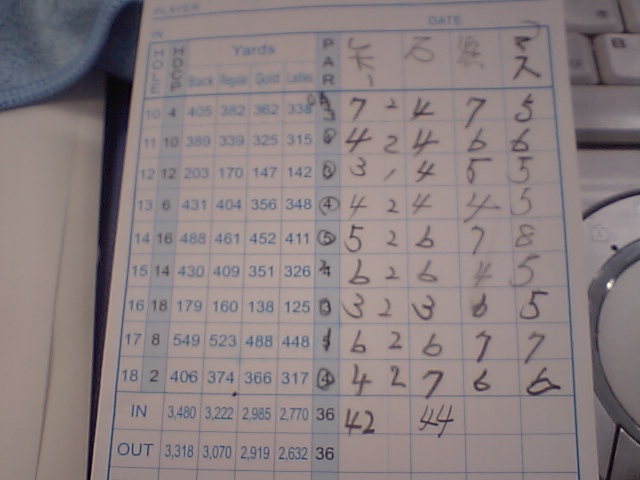 PLAYER
DATE
IN
HOLE HDCP Yards PAR
Back Regular Gold Ladies
10 4 405 382 362 338 7 2 4 7 5
11 10 389 339 325 315 4 2 4 6 6
12 12 203 170 147 142 3 3 1 4 5 5
13 6 431 404 356 348 4 4 2 4 4 5
14 16 488 461 452 411 5 5 2 6 7 8
15 14 430 409 351 326 4 6 2 6 4 5
16 18 179 160 138 125 3 3 2 3 6 5
17 8 549 523 488 448 6 2 6 7 7
18 2 406 374 366 317 4 4 2 7 6 6
IN 3,480 3,222 2,985 2,770 36 42 44
OUT 3,318 3,070 2,919 2,632 36